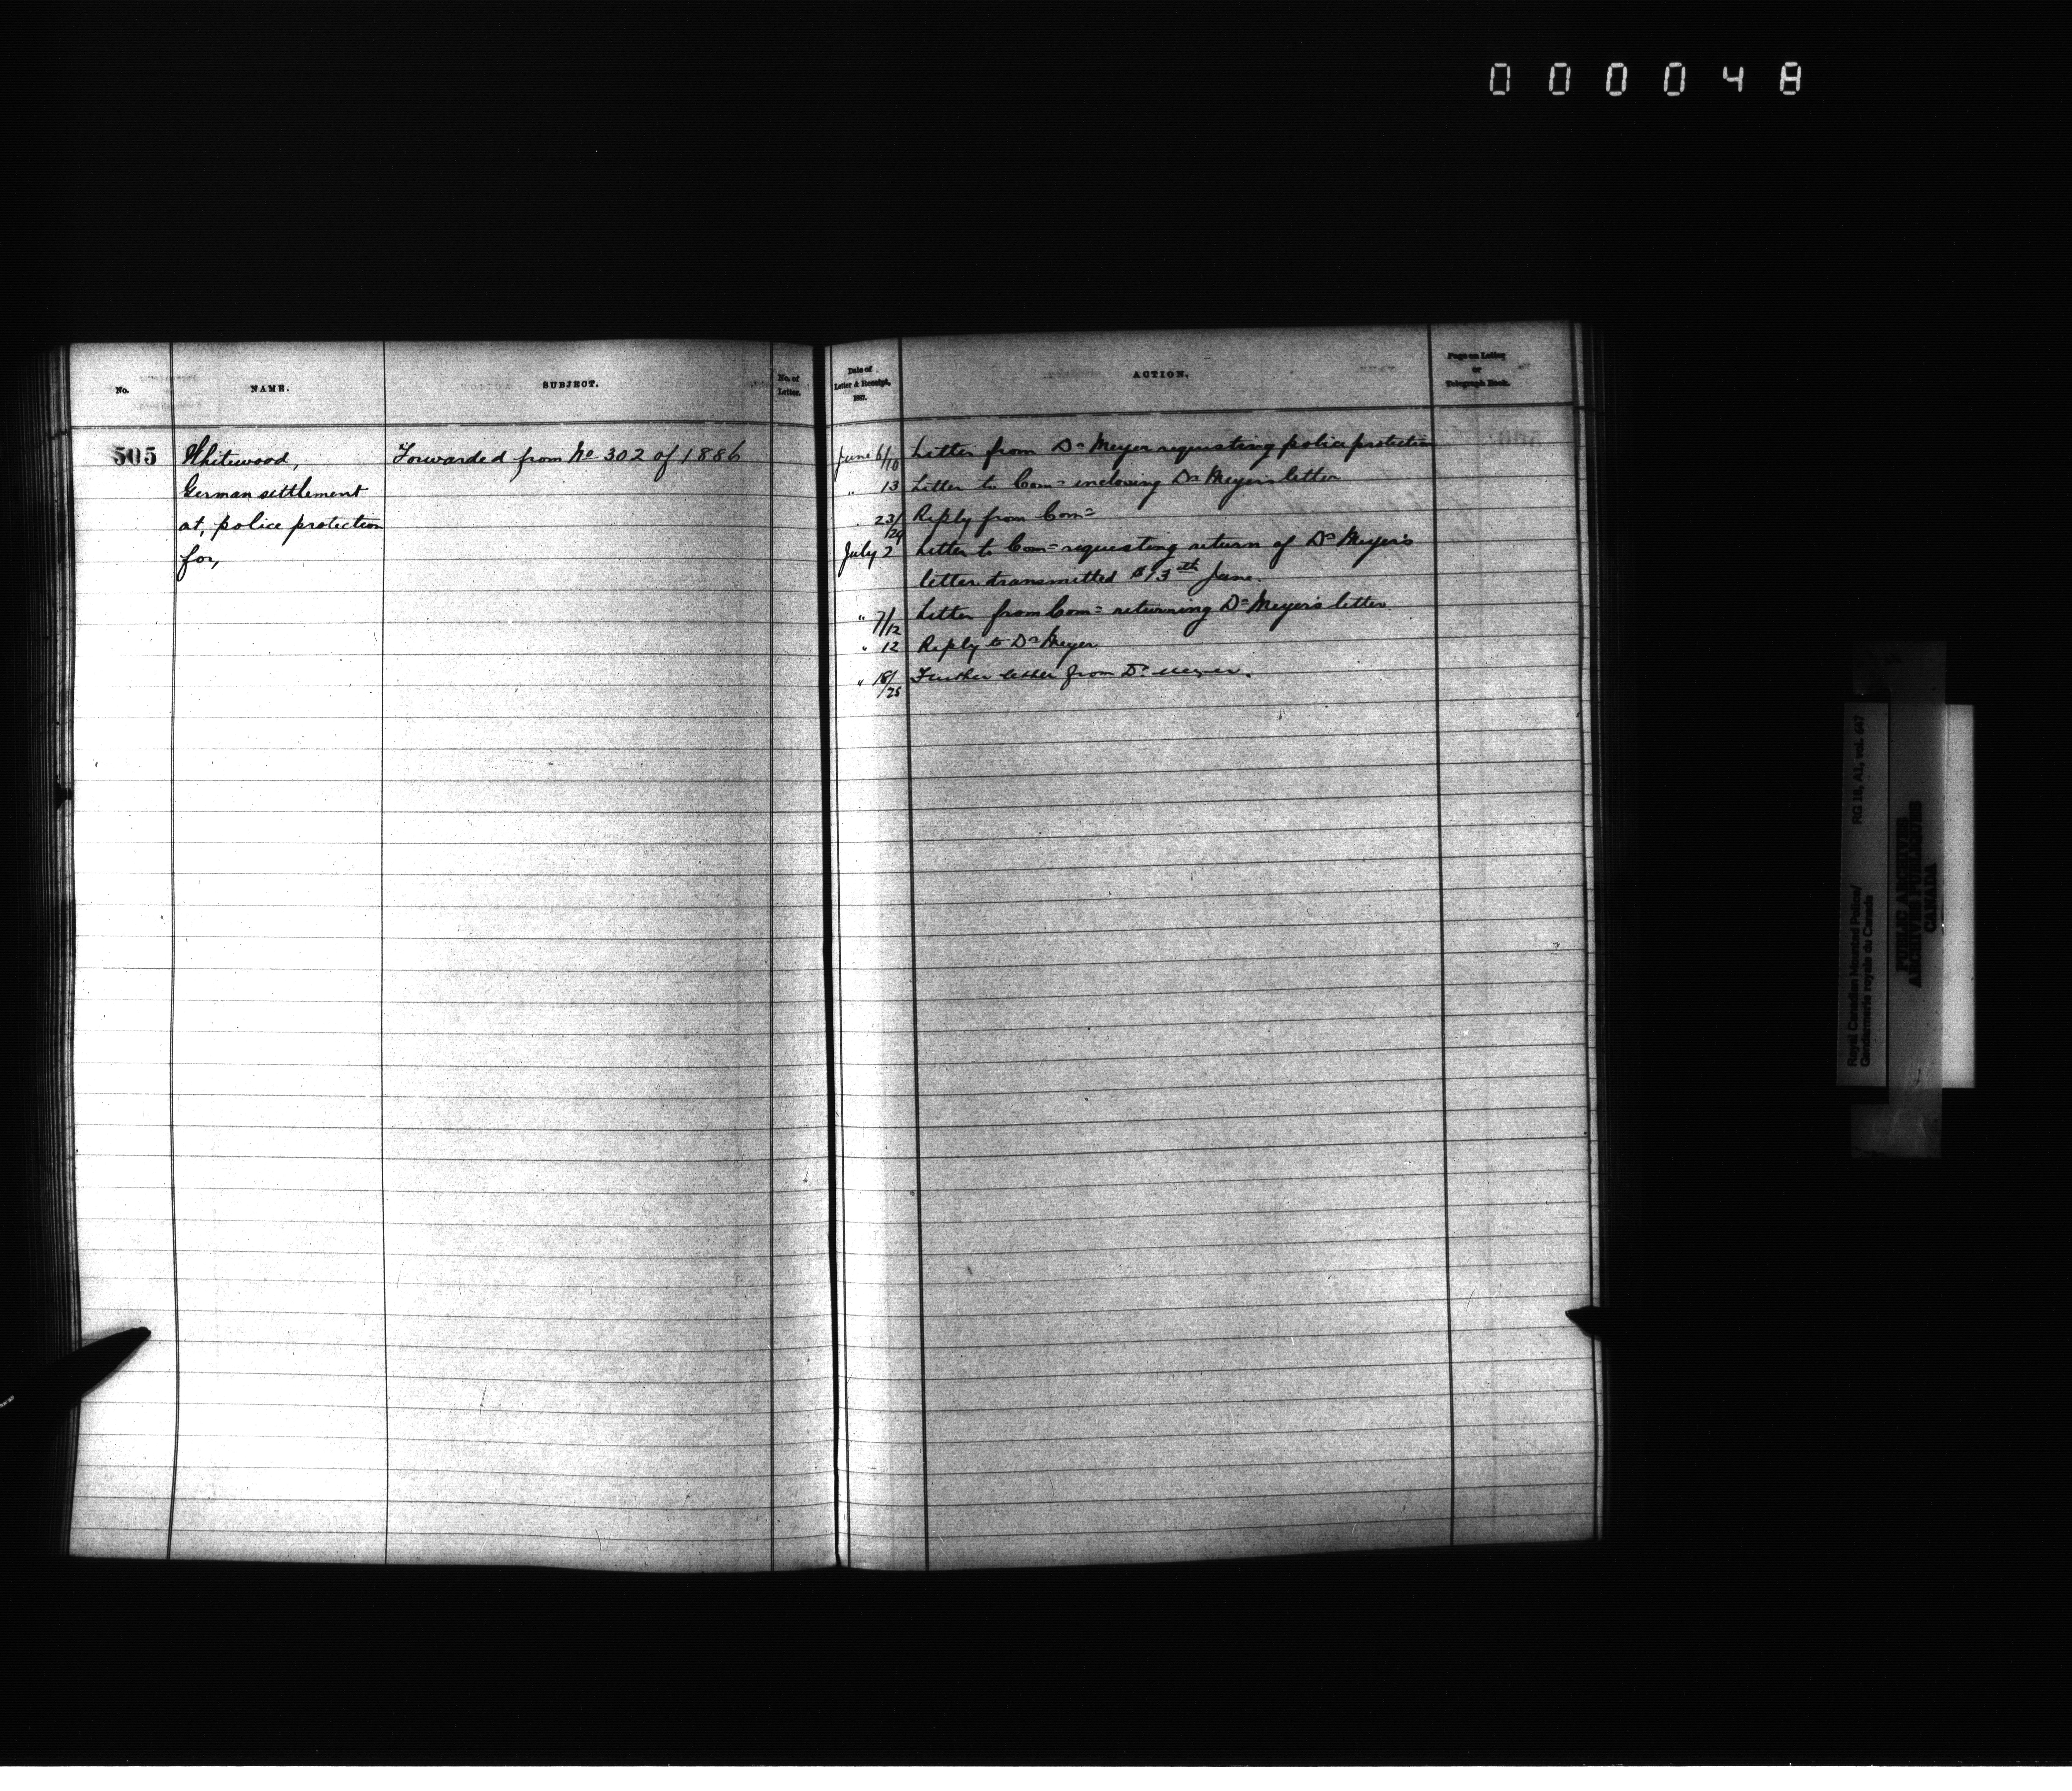 000048
No.
NAME.
SUBJECT.
No. of
Letter.
505
Whitewood,
German settlement
at, police protection
for,
Forwarded from No 302 of 1886
Date of
Letter & Receipt,
1887.
ACTION.
Page on Letter
or
Telegraph Book.
June 6/10 Letter from Dr Meyer requesting police protection
" 13 Letter to Comr enclosing Dr Meyer's letter
" 23/24 Reply from Comr
July 2 Letter to Comr requesting return of Dr Meyer's
letter transmitted 13th June.
" 7/12 Letter from Comr returning Dr Meyer's letter
" 12 Reply to Dr Meyer
" 18/25 Further letter from Dr Meyer.
Royal Canadian Mounted Police/ RG 18, A1, vol. 647
Gendarmerie royale du Canada
PUBLIC ARCHIVES
ARCHIVES PUBLIQUES
CANADA